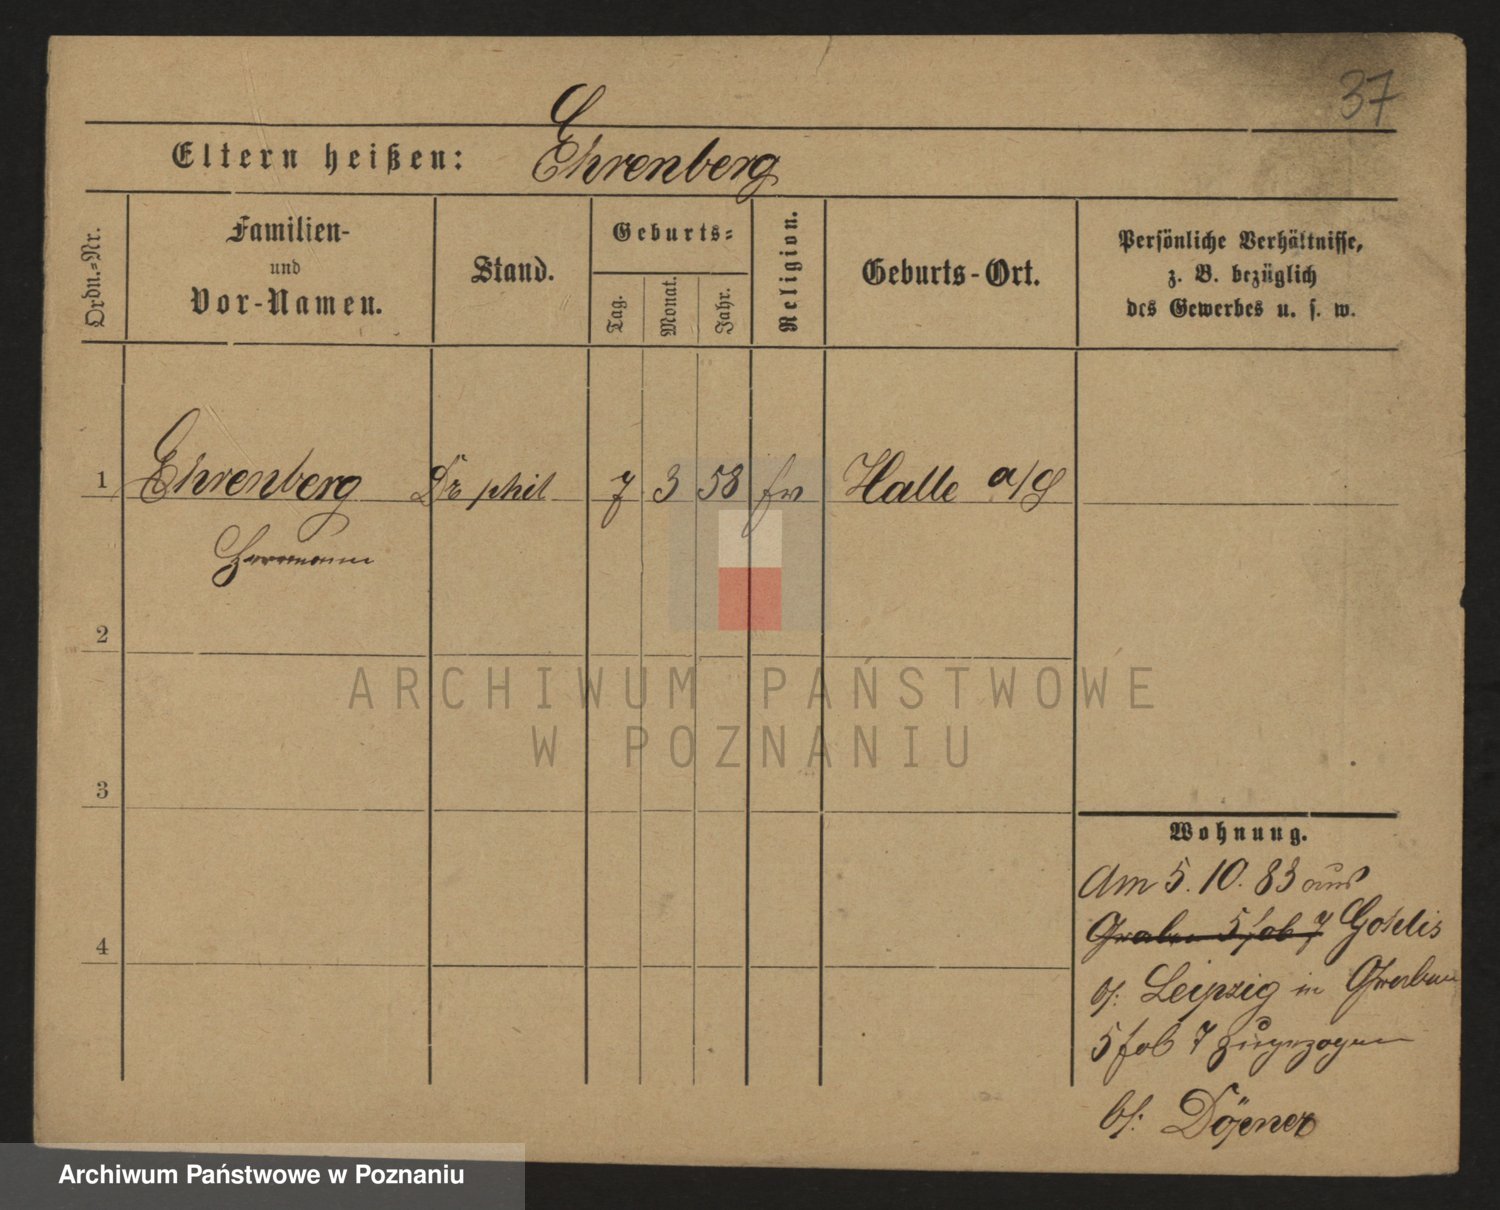 37
Eltern heißen: Ehrenberg
Ordn.=Nr.
Familien-
und
Vor-Namen.
Stand.
Geburts=
Tag.
Monat.
Jahr.
Religion.
Geburts-Ort.
Persönliche Verhältnisse,
z. B. bezüglich
des Gewerbes u. s. w.
1 Ehrenberg Dr phil 7 3 58 Halle a/S
Herrmann
2
3
4
Wohnung.
Am 5. 10. 83 aus
Graben 5 fob 7 Gohlis
b/: Leipzig in Graben
5 fob 7 zugezogen
b/:
ARCHIWUM PAŃSTWOWE
W POZNANIU
Archiwum Państwowe w Poznaniu